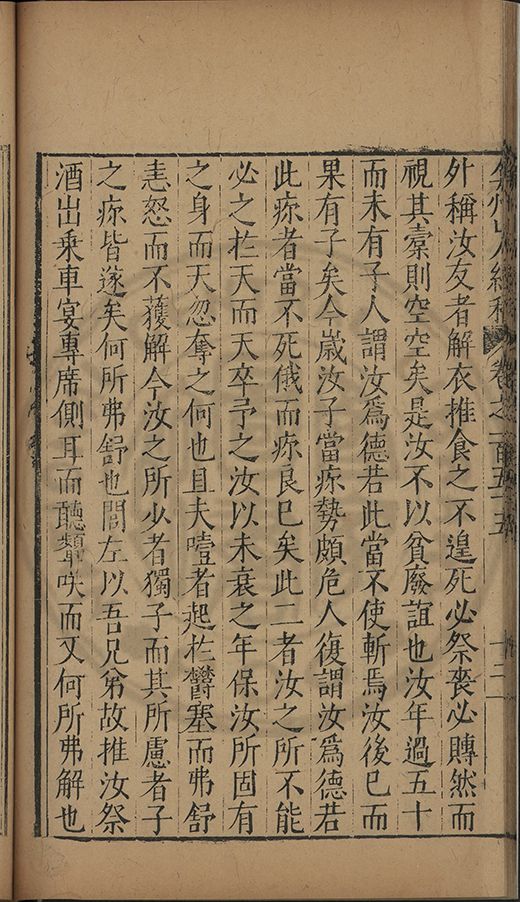 弇州山人續稿 卷之一百五十五 十二
外稱汝友者解衣推食之不遑死必祭喪必賻然而
視其橐則空空矣是汝不以貧廢誼也汝年過五十
而未有子人謂汝爲德若此當不使斬焉汝後已而
果有子矣今歲汝子當疹勢頗危人復謂汝爲德若
此疹者當不死俄而疹良已矣此二者汝之所不能
必之扵天而天卒予之汝以未衰之年保汝所固有
之身而天忽奪之何也且夫噎者起扵欝塞而弗舒
恚怒而不獲解今汝之所少者獨子而其所慮者子
之疹皆遂矣何所弗舒也閭左以吾兄弟故推汝祭
酒出乗車宴專席側耳而聽顰咲而又何所弗解也